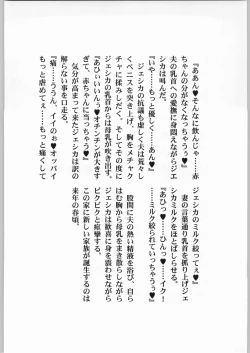 『ああん♥そんなに飲んじゃ……赤
ちゃんの分がなくなっちゃうぅ♥』
夫の乳首への愛撫に身悶えながらジェ
シカは叫んだ。
『いや……もっと優しく……あん♥』
ジェシカの抗議も虚しく夫は荒々し
くペニスを突き上げ、胸をメチャク
チャに揉みしだく。そしてその度に
ジェシカの乳首からは母乳が吹き出す。
『あひぃいいん♥オチンチンが大きす
ぎて、赤ちゃんに当っちゃう♥』
気分が高まって来たジェシカは訳の
解らない事を口走る。
『痛……ううん、イイのぉ♥オッパイ
もっと虐めてぇ……もっと痛くして
ジェシカのミルク絞ってぇ♥』
妻の言葉通り乳首を抓り上げジェ
シカミルクをほとばしらせる。
『あひっ♥……ひんっ♥……イク！
……ミルク絞られていっちゃうぅ♥』
股間に夫の熱い精液を浴び、自ら
はむ胸から母乳をまき散らしながら
ジェシカは歓喜に身を震わせながら
ビクビクと痙攣する。
この家に新しい家族が誕生するのは
来年の春頃。